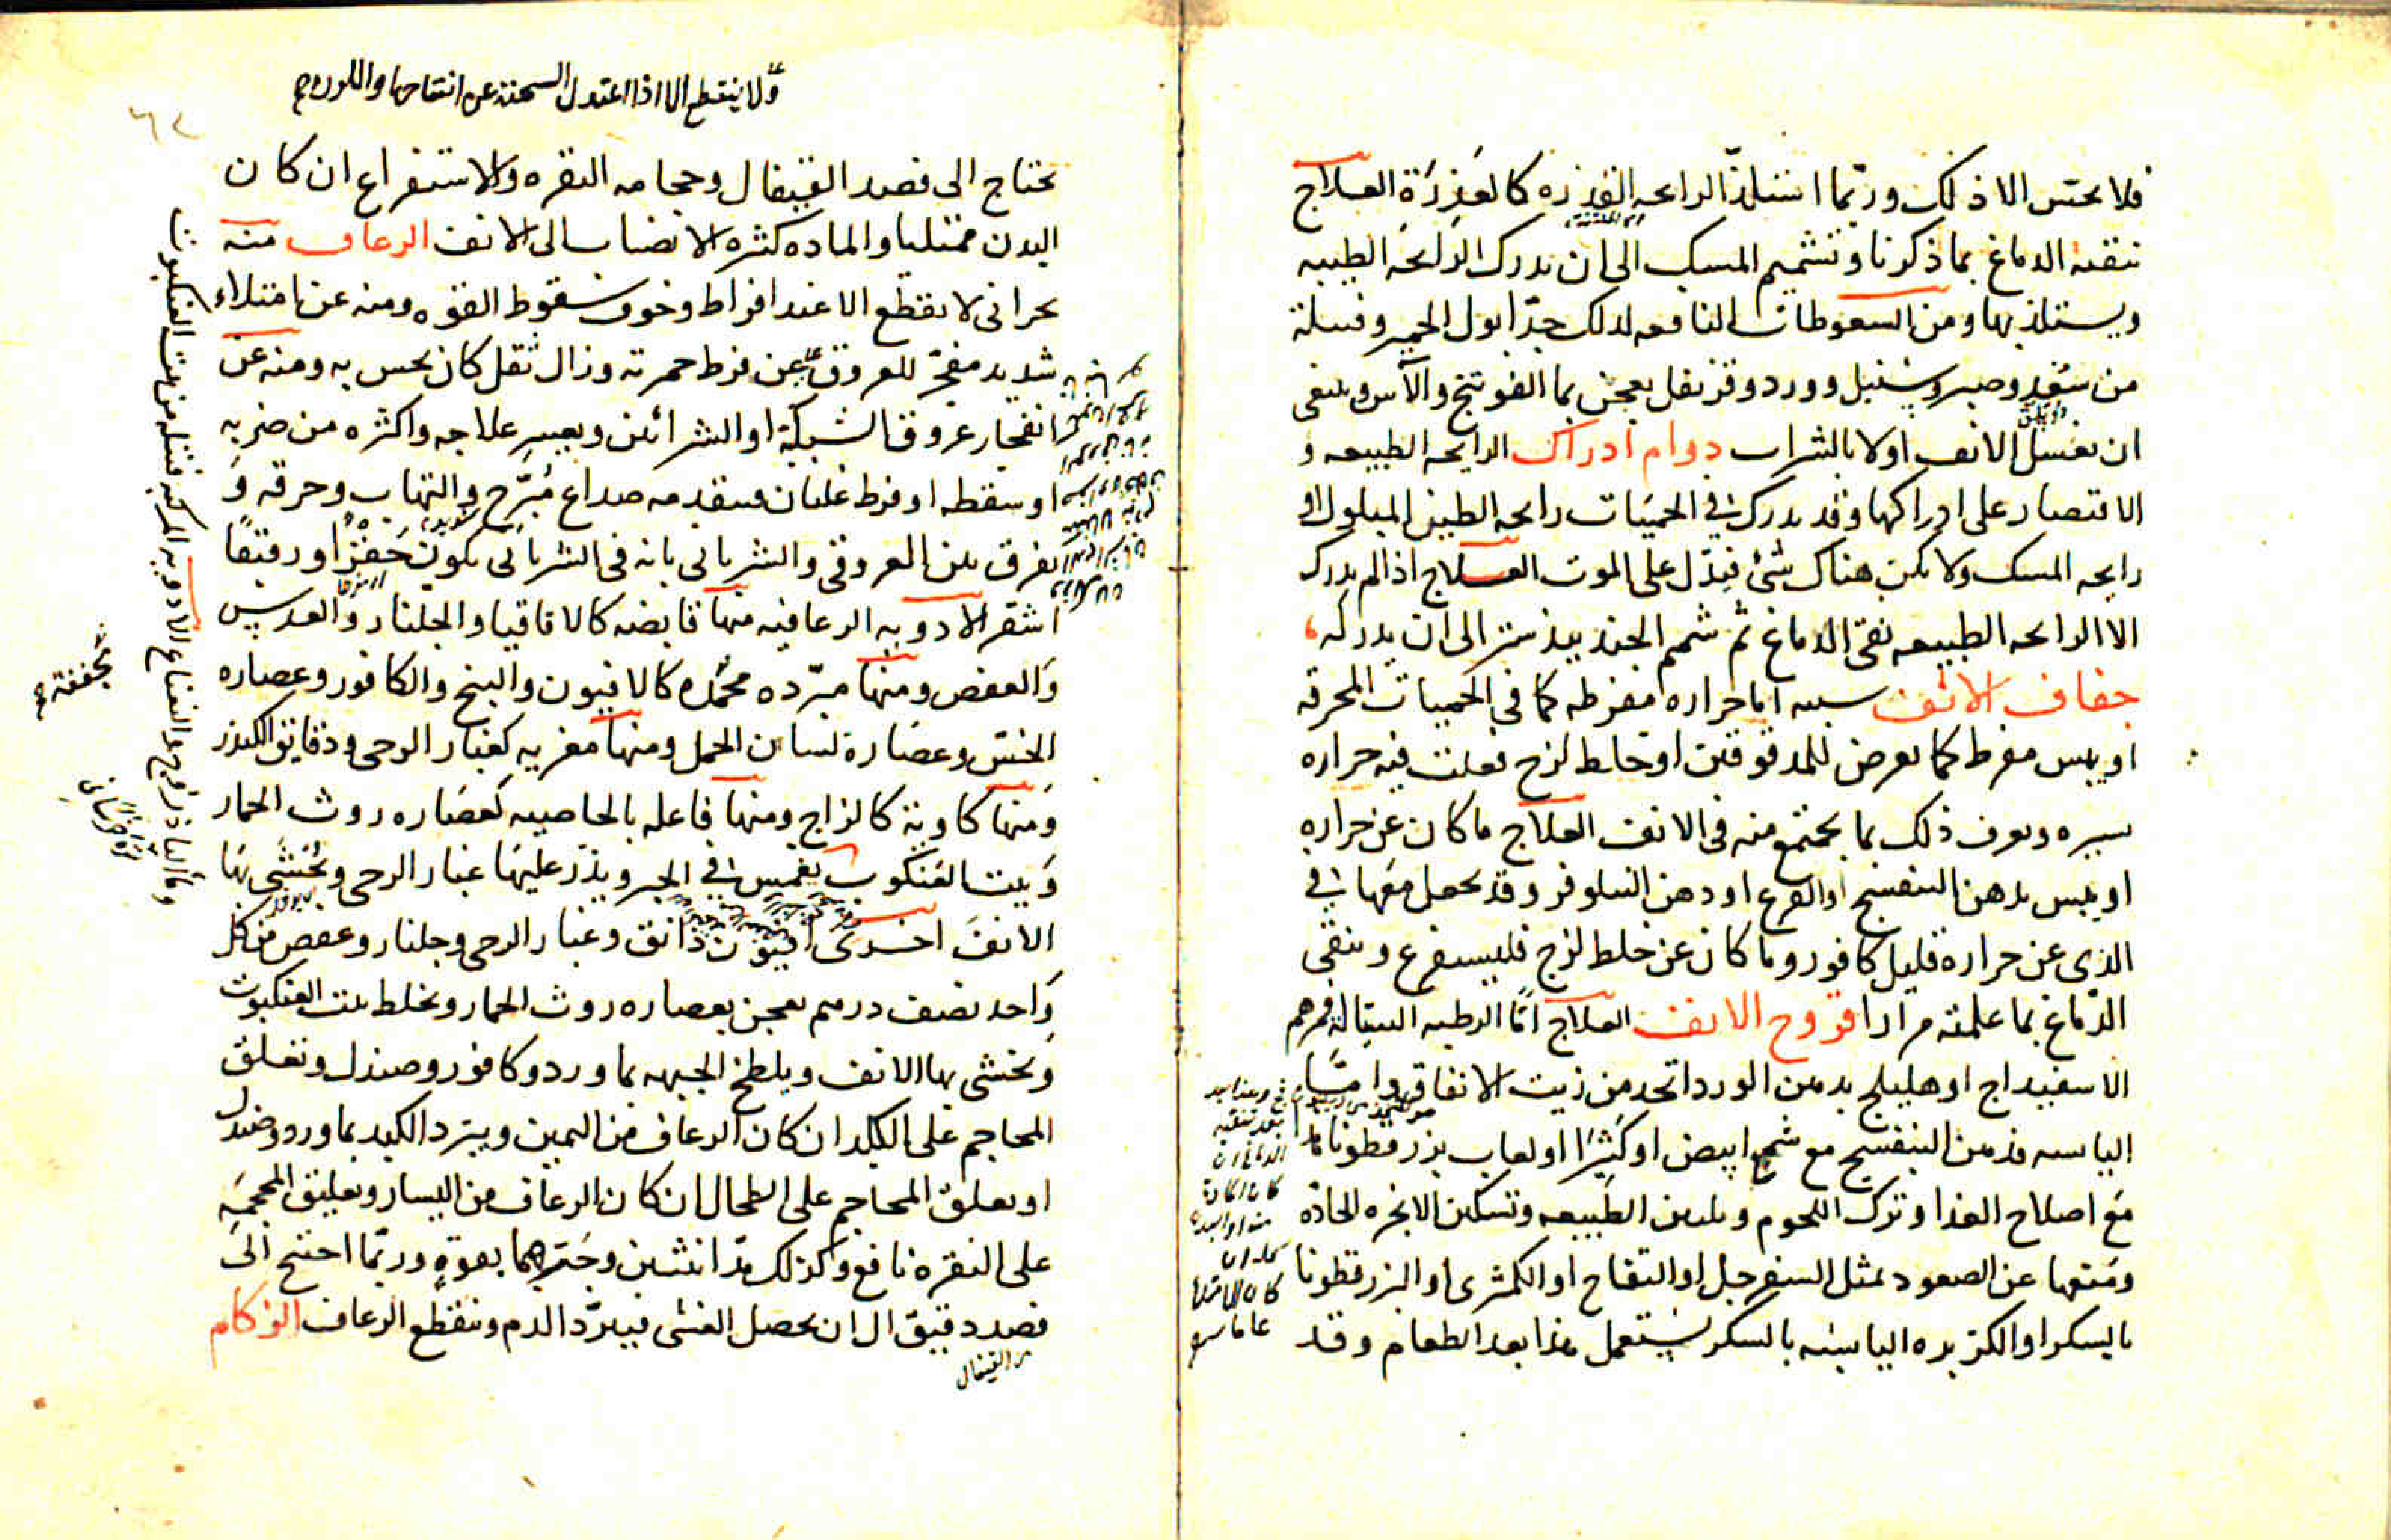 فلا يحس الا ذلك وربما استلذ الرايحه القذره كالعذرة العلاج
تنقيه الدماغ بما ذكرنا وتشميم المسك الى ان يدرك الرايحه الطيبه
ويستلذ بها ومن السعوطات النافعه لذلك جدا بول الحمير وفتيلة
من سعد وصبر وسنبل وورد وقرنفل يعجن بما الفوتنج والآس وينبغى
ان يغسل الانف اولا بالشراب دوام ادراك الرايحه الطيبه و
الاقتصار على ادراكها وقد يدرك فى الحميات رايحه الطين المبلول او
رايحه المسك ولا يكن هناك شئ فيدل على الموت العلاج اذا لم يدرك
الا الرايحه الطيبه نقى الدماغ ثم شمم الجندبيدستر الى ان يدركه
جفاف الانف سببه اما حراره مفرطه كما فى الحميات المحرقه
او يبس مفرط كما يعرض للمدقوقين او خلط لزج فعلت فيه حراره
يسيره ويعرف ذلك بما يجتمع منه فى الانف العلاج ما كان عن حراره
او يبس بدهن البنفسج او القرع او دهن النيلوفر وقد يجعل معها فى
الذى عن حرارة قليل كافور وما كان عن خلط لزج فليستفرغ وينقى
الدماغ بما علمته مرارا قروح الانف العلاج اما الرطبه السيالة فمرهم
الاسفيداج او هليلج بدهن الورد اتخد من زيت الانفاق واما
اليابسه فدهن البنفسج مع شمع ابيض او كثيرا او لعاب بزر قطونا
مع اصلاح الغذا وترك اللحوم وتليين الطبيعه وتسكين الابخره الحاده
ومنعها عن الصعود بمثل السفرجل او التفاح او الكمثرى او البزر قطونا
بالسكر او الكزبره اليابسه بالسكر يستعمل هذا بعد الطعام وقد
ولا ينقطع الا اذا اعتدل السحنة عن انتفاخها واللون
٦٢
يحتاج الى فصد القيفال وحجامه النقره والاستفراغ ان كان
البدن ممتليا والماده كثره الانصباب الى الانف الرعاف منه
بحرانى لا يقطع الا عند افراط وخوف سقوط القوه ومنه عن امتلاء
شديد مفجر للعروق عن فرط حمرته وزال ثقل كان يحس به ومنه عن
انفجار عروق الشبكة او الشرائين ويعسر علاجه واكثره من ضربه
او سقطه او فرط غليان فيتقدمه صداع مبرح والتهاب وحرقه و
يفرق بين العروقى والشريانى بانه فى الشريانى يكون حفزا ورقيقا
اشقر الادويه الرعافيه منها قابضه كالاقاقيا والجلنار والعدس
والعفص ومنها مبرده محمده كالافيون والبنج والكافور وعصاره
الخس وعصارة لسان الحمل ومنها مغريه كغبار الرحى ودقايق الكندر
ومنها كاوية كالزاج ومنها فاعله بالخاصيه كعصاره روث الحمار
وبيت العنكبوت يغمس فى الحبر ويذر عليها غبار الرحى ويحشى بها
الانف اخرى افيون دانق وغبار الرحى وجلنار وعفص من كل
واحد نصف درهم يعجن بعصاره روث الحمار ويخلط بيت العنكبوت
ويحشى بها الانف ويلطخ الجبهه بما ورد وكافور وصندل وتعلق
المحاجم على الكبد ان كان الرعاف من اليمين ويبرد الكبد بماورد وصندل
او يعلق المحاجم على الطحال ان كان الرعاف من اليسار وتعليق المحجمه
على النقره نافع وكذلك مد انثيين وجرهما بقوة وربما احتيج الى
فصد دقيق الى ان يحصل الغشى فيبرد الدم وينقطع الرعاف الزكام
من القيفال